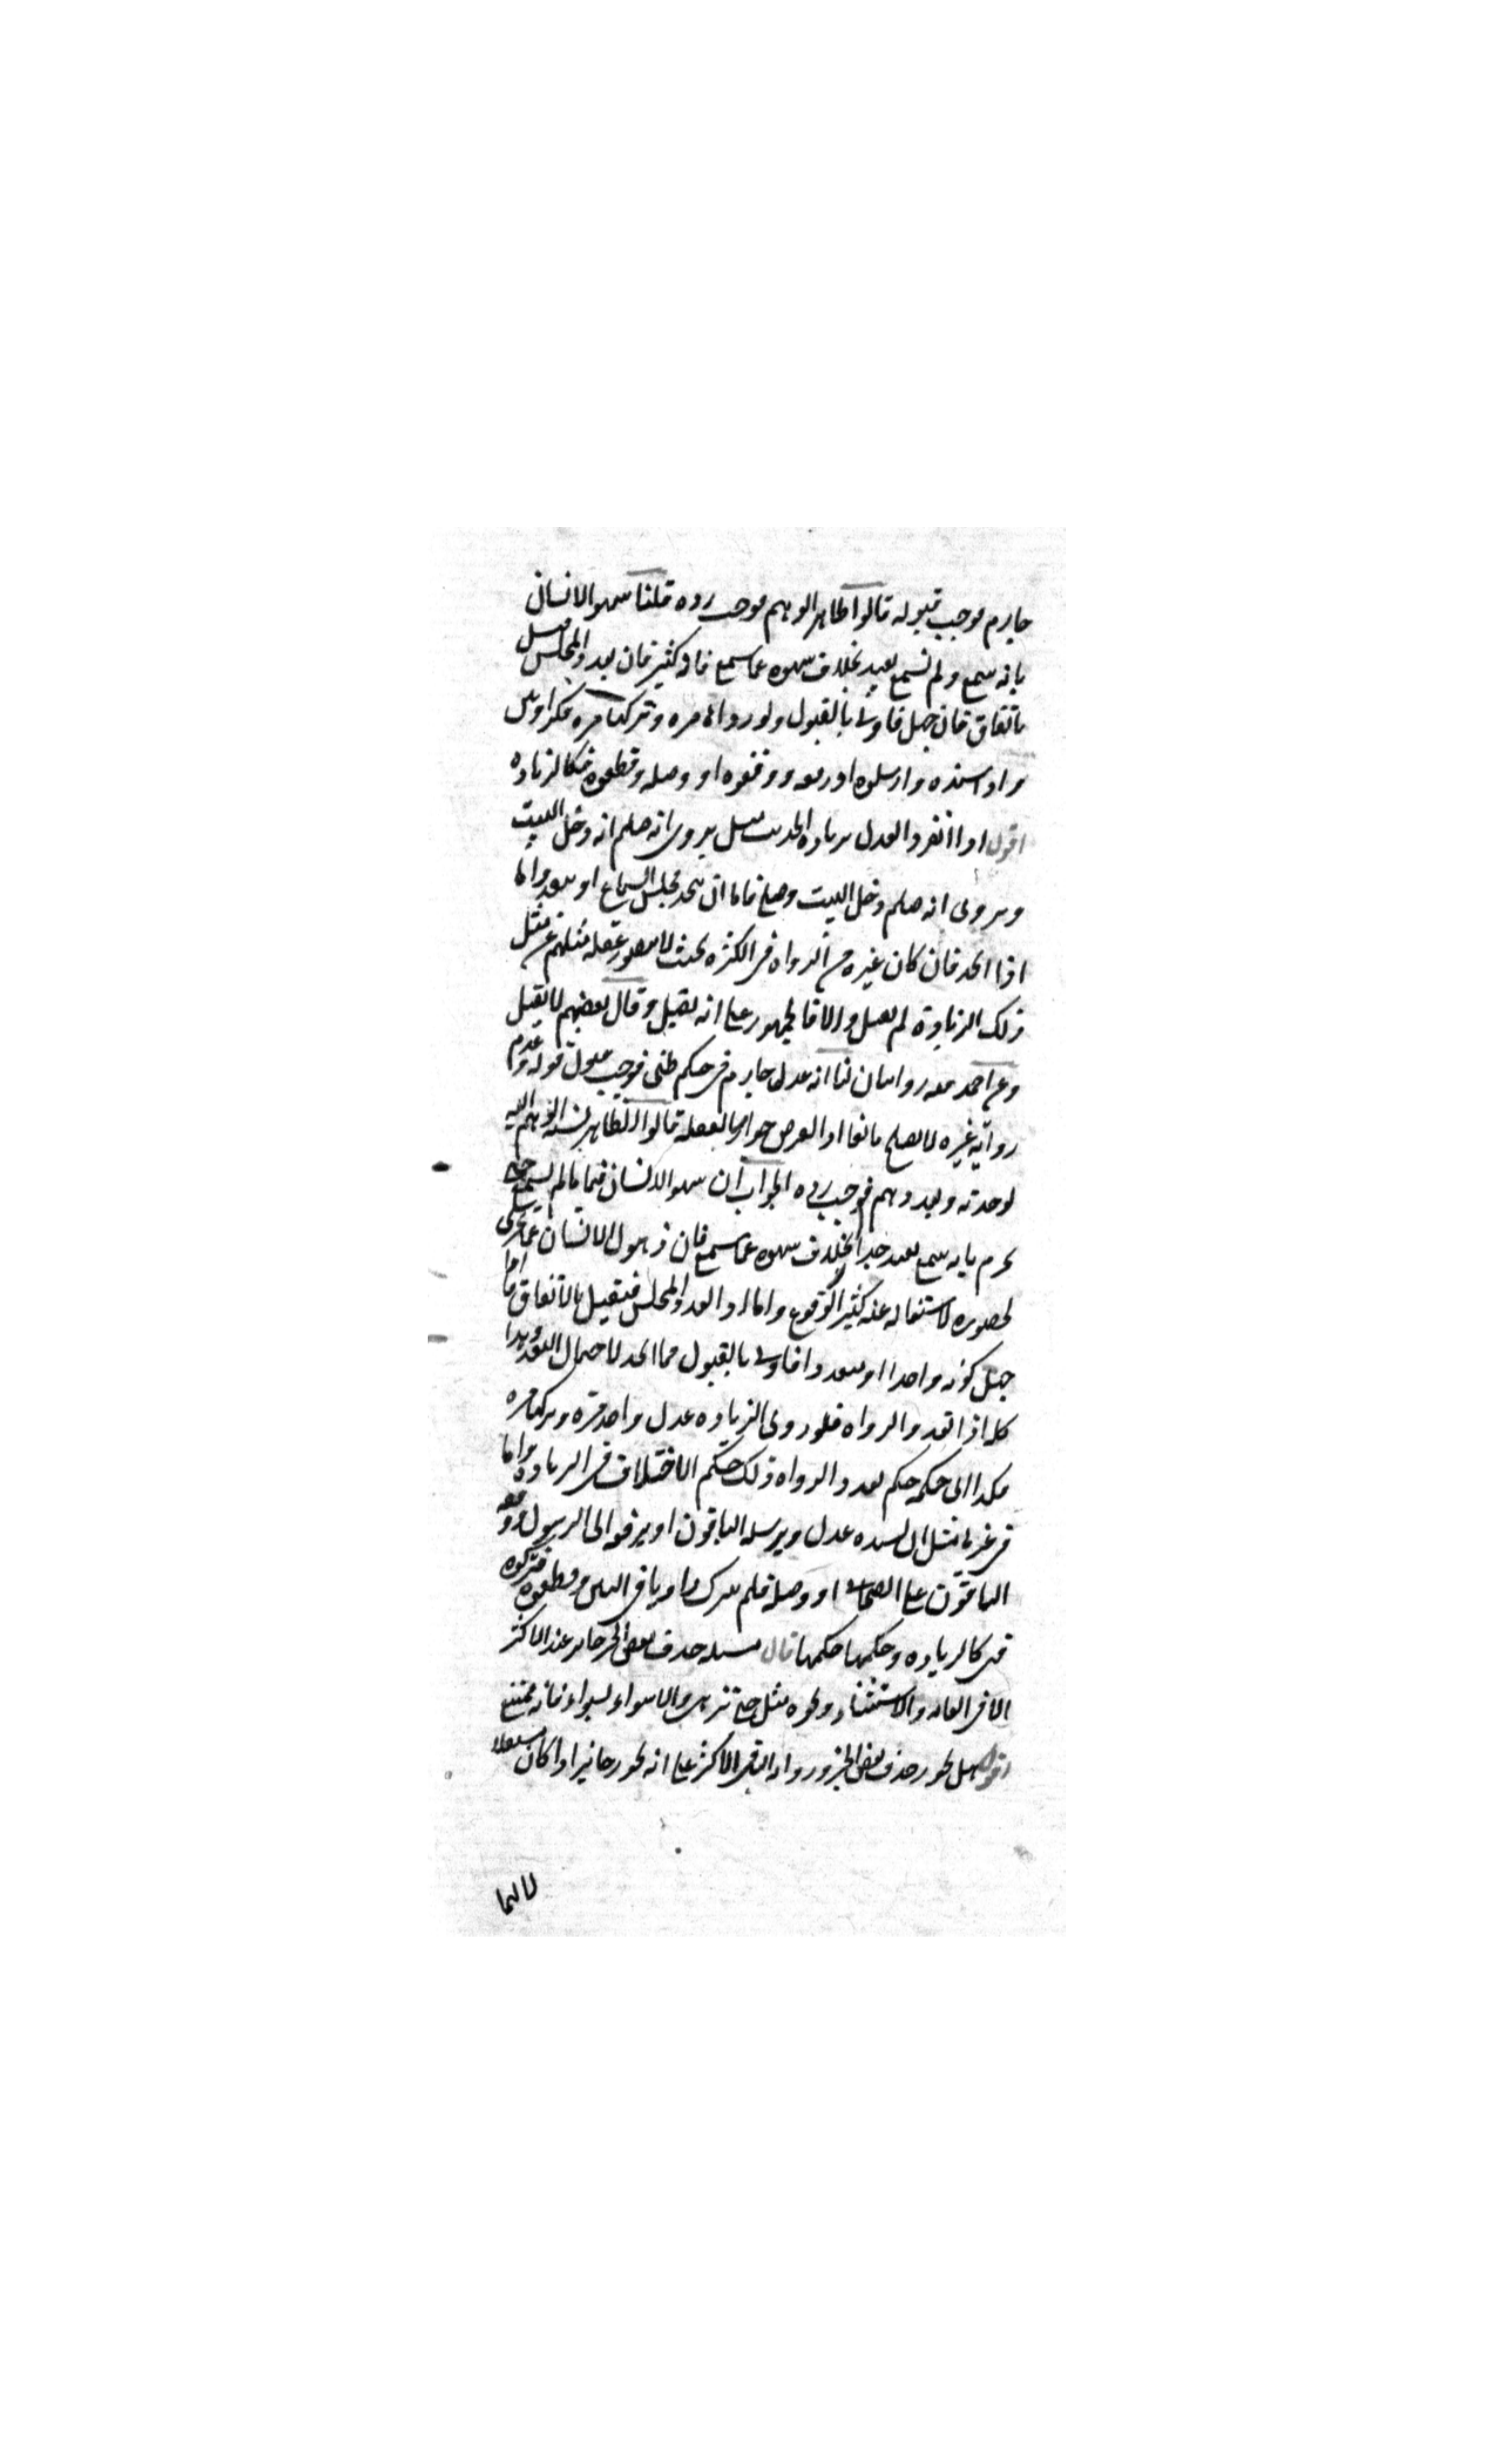 جازم فوجب قبوله قالوا ظاهر الوهم فوجب رده قلنا سهو الانسان
بانه سمع ولم يسمع بعيد بخلاف سهوه عما سمع فانه كثير فان تعدد المجلس قبل
باتفاق فان جهل فاولى بالقبول ولو رواها مرة وتركها مرة فكراويين
واذا اسنده وارسلوه او رفعه ووقفوه او وصله وقطعوه فكالزيادة
اقول اذا انفرد العدل بزيادة في الحديث مثل يروى انه صلعم انه دخل البيت
ويروى انه صلعم دخل البيت وصلى فاما ان يتحد مجلس السماع او يتعدد واما
اذا اتحد فان كان غيره من الرواة في الكثرة بحيث لا يتصور غفلة مثلهم عن مثل
ذلك الزيادة لم يقبل والا فالجمهور على انه يقبل وقال بعضهم لا يقبل
وعن احمد فيه روايتان لنا انه عدل جازم في حكم ظني فوجب قبول قوله وعدم
رواية غيره لا يصلح مانعا اذ الفرض جواز الغفلة قالوا الظاهر نسبة الوهم اليه
لوحدته وتعددهم فوجب رده الجواب ان سهو الانسان فيما لم يسمع حتى
يجزم بانه سمع بعيد جدا بخلاف سهوه عما سمع فان ذهول الانسان عما يجري
بحضوره لاشتغاله عنه كثير الوقوع واما اذا تعدد المجلس فيقبل بالاتفاق فاما اذا
جهل كونه واحدا او متعددا فاولى بالقبول مما اتحد لاحتمال التعدد وهذا
كله اذا تعدد الرواة فلو روى الزيادة عدل واحد مرة وتركها مرة
فكذا الى حكمه حكم تعدد الرواة ذلك حكم الاختلاف في الزيادة واما
في غيرها مثل ان يسنده عدل ويرسله الباقون او يرفعه الى الرسول ووقفه
الباقون على الصحابي او وصله فلم يترك راويا في البين وقطعوه فتركوه
فهي كالزيادة وحكمها حكمها قال مسئلة حذف بعض الخبر جائز عند الاكثر
الا في الغاية والاستثناء ونحوه مثل حتى تزهى والا سواء بسواء فانه ممتنع
اقول هل يجوز حذف بعض الخبر ورواية الباقي الاكثر على انه يجوز جائزا اذا كان مستقلا